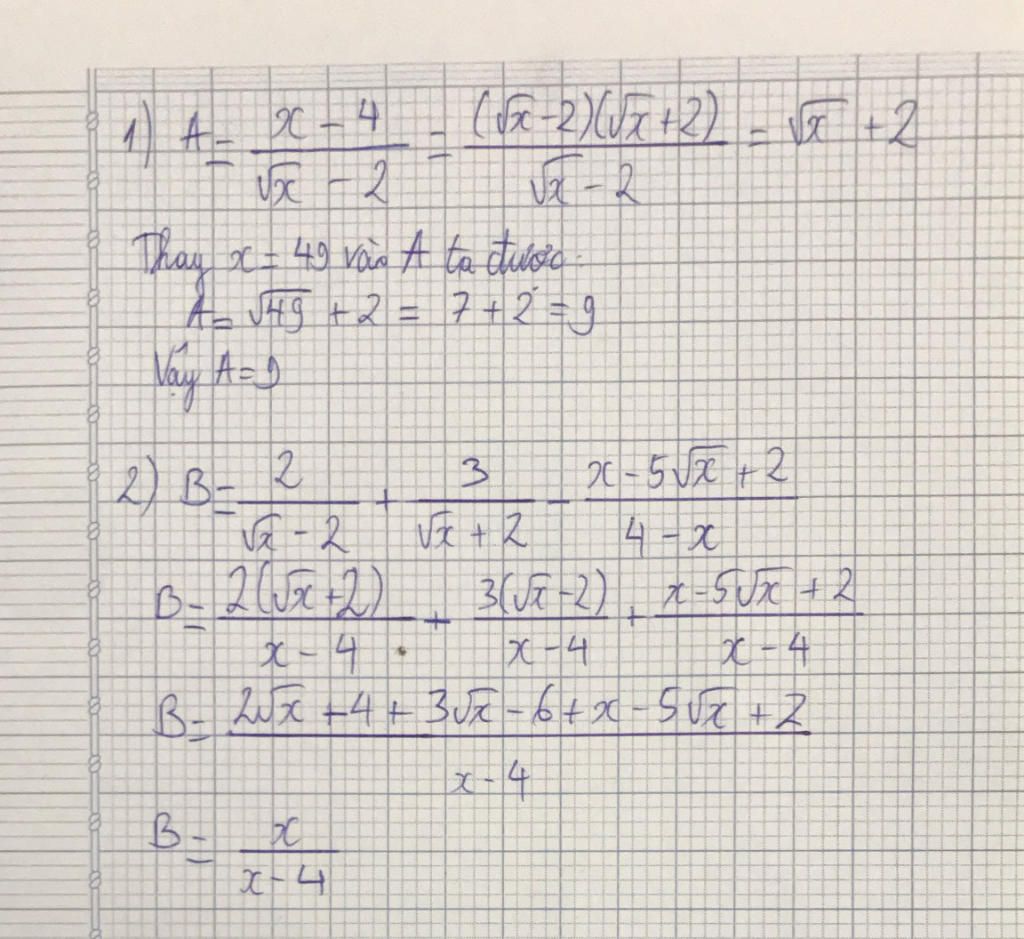 1) A = (x - 4)/(√x - 2) = ((√x - 2)(√x + 2))/(√x - 2) = √x + 2
Thay x = 49 vào A ta được:
A = √49 + 2 = 7 + 2 = 9
Vậy A = 9
2) B = 2/(√x - 2) + 3/(√x + 2) - (x - 5√x + 2)/(4 - x)
B = 2(√x + 2)/(x - 4) + 3(√x - 2)/(x - 4) + (x - 5√x + 2)/(x - 4)
B = (2√x + 4 + 3√x - 6 + x - 5√x + 2)/(x - 4)
B = x/(x - 4)